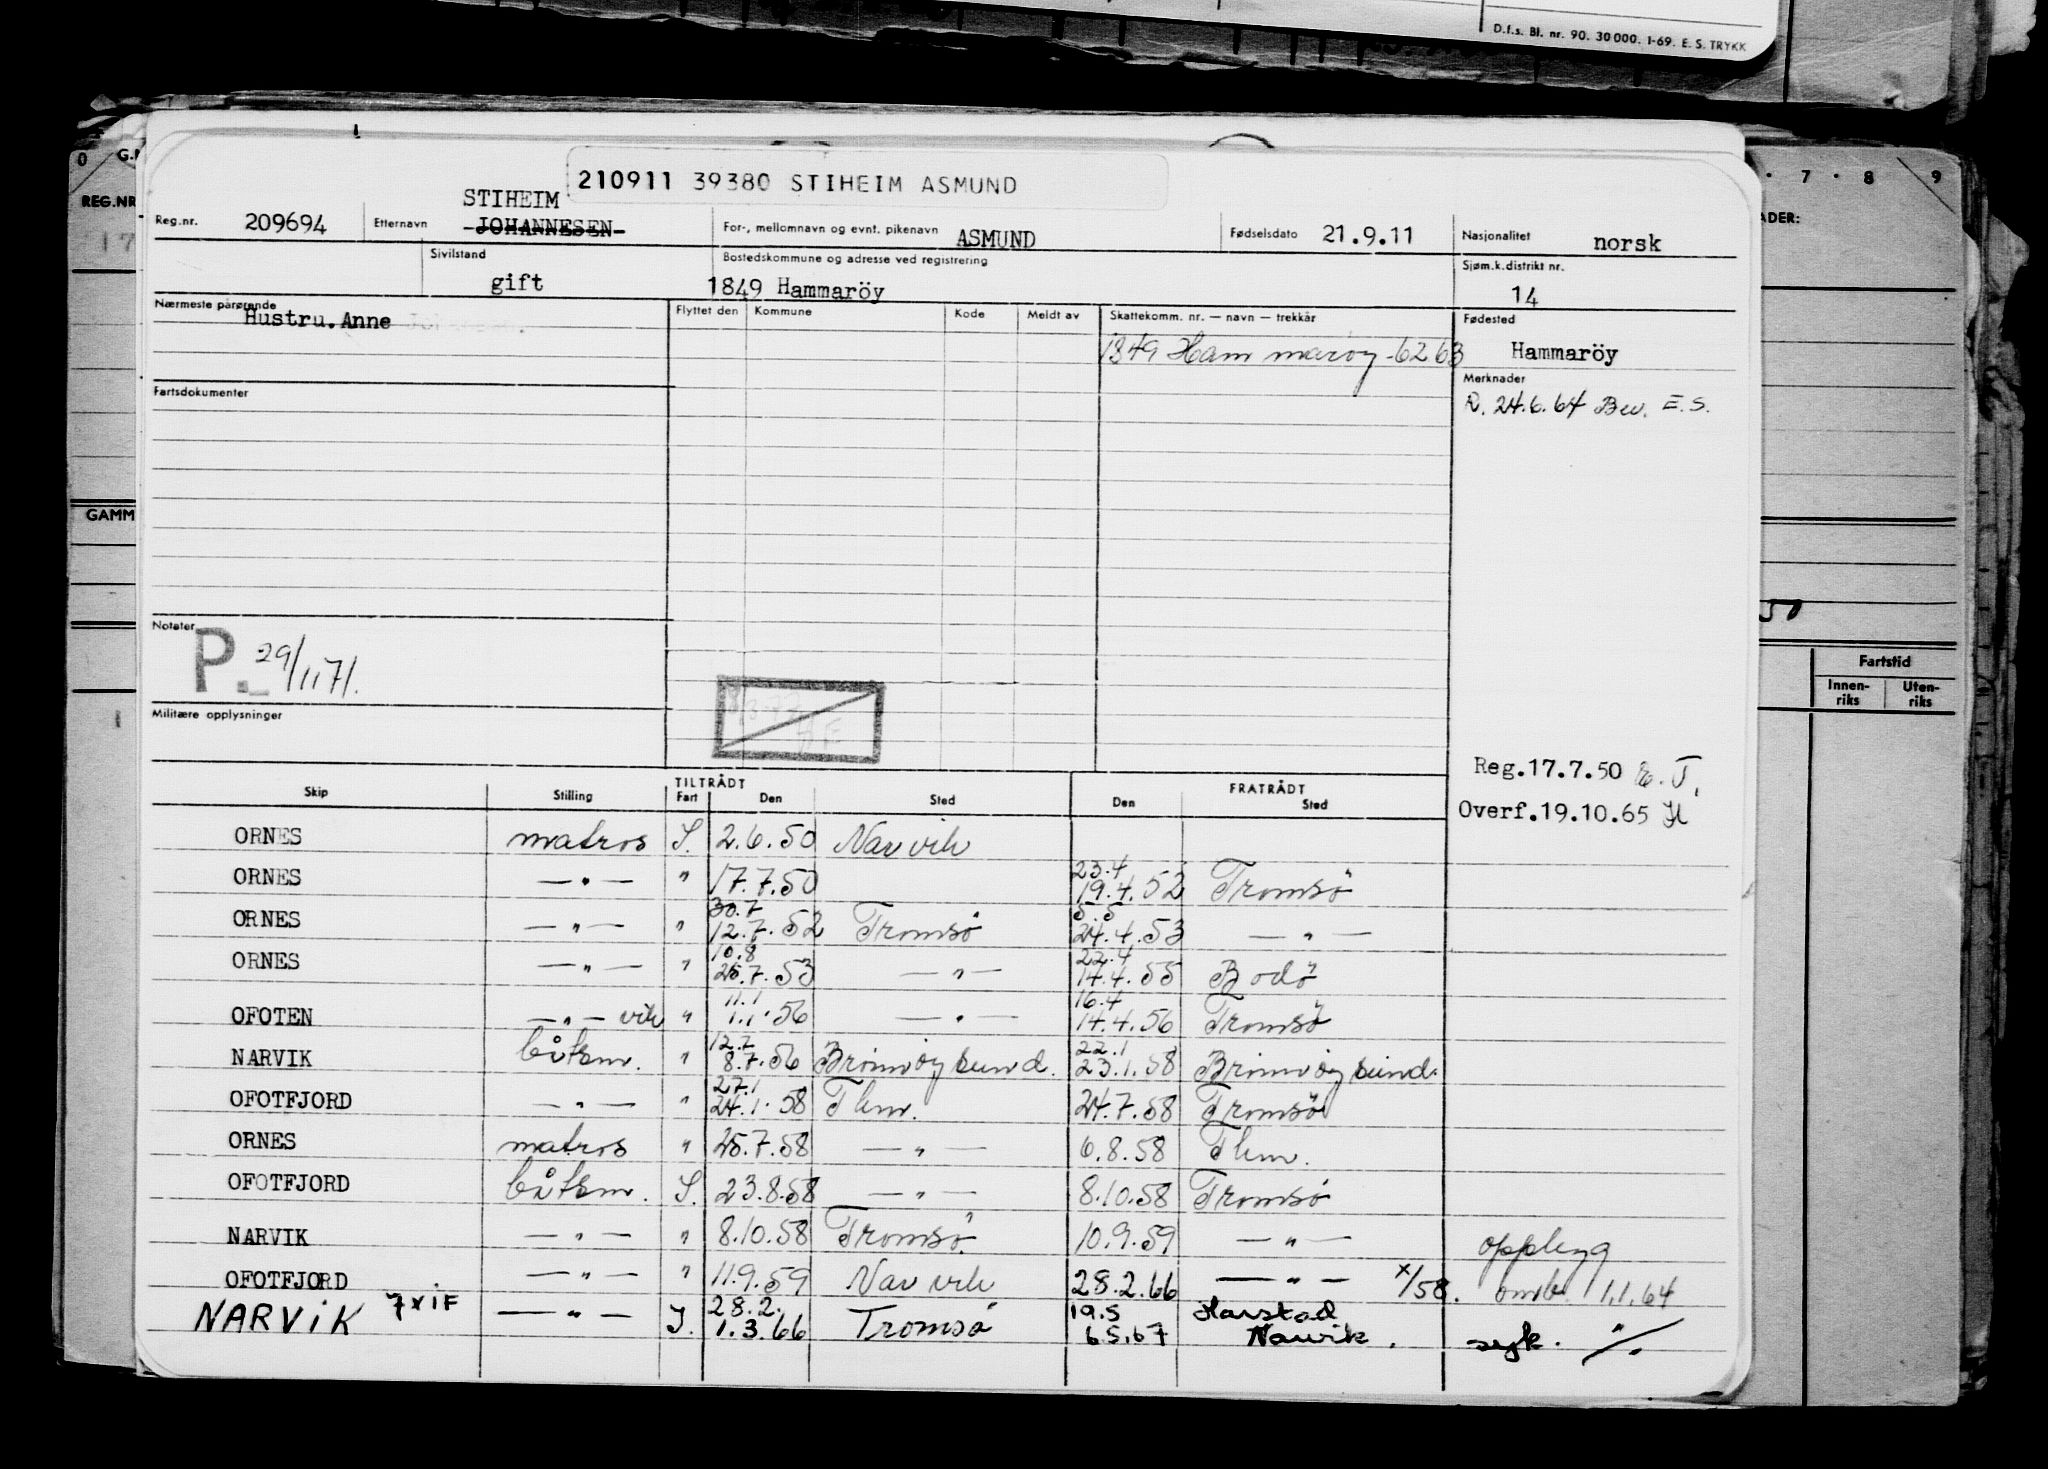 D.f.s. Bl. nr. 90. 30 000. 1-69. E. S. TRYKK
0 G.
7 · 8 9
REG.NR
ADER:
17
GAMM
50
Fartstid
Innen-riks Uten-riks
210911 39380 STIHEIM ASMUND
STIHEIM
Reg.nr. 209694 Etternavn JOHANNESEN For-, mellomnavn og evnt. pikenavn ASMUND Fødselsdato 21.9.11 Nasjonalitet norsk
Sivilstand gift Bostedskommune og adresse ved registrering 1849 Hammaröy Sjøm.k.distrikt nr. 14
Nærmeste pårørende Hustru.Anne
Flyttet den Kommune Kode Meldt av Skattekomm. nr. — navn — trekkår Fødested
1849 Hammarøy -62 63 Hammaröy
Fartsdokumenter
Merknader
R. 24.6.64 Bev. E.S.
Notater
P. 29/11 71.
Militære opplysninger
Reg.17.7.50
Overf.19.10.65 H
Skip Stilling TILTRÅDT Fart Den Sted FRATRÅDT Den Sted
ORNES matros S. 2.6.50 Narvik
ORNES — " — " 17.7.50 23.4 19.4.52 Tromsö
ORNES — " — " 30.7 12.7.52 Tromsö 5.5 24.4.53 — " —
ORNES — " — " 10.8 25.7.53 — " — 22.4 14.4.55 Bodö
OFOTEN — " — vik " 11.1 1.1.56 — " — 16.4 14.4.56 Tromsö
NARVIK båtsm. " 12.7 8.7.56 Brönnöysund. 22.1 23.1.58 Brönnöysund.
OFOTFJORD — " — " 27.1 24.1.58 Thm. 24.7.58 Tromsö
ORNES matros " 25.7.58 — " — 6.8.58 Thm.
OFOTFJORD båtsm. S. 23.8.58 — " — 8.10.58 Tromsö
NARVIK — " — " 8.10.58 Tromsö 10.9.59 — " — opplegg
OFOTFJORD — " — " 11.9.59 Narvik 28.2.66 — " — x/58. omb. 1.1.64
NARVIK 7 x iF — " — I. 28.2. 1.3.66 Tromsö 19.5 6.5.67 Harstad Narvik. syk. " /.